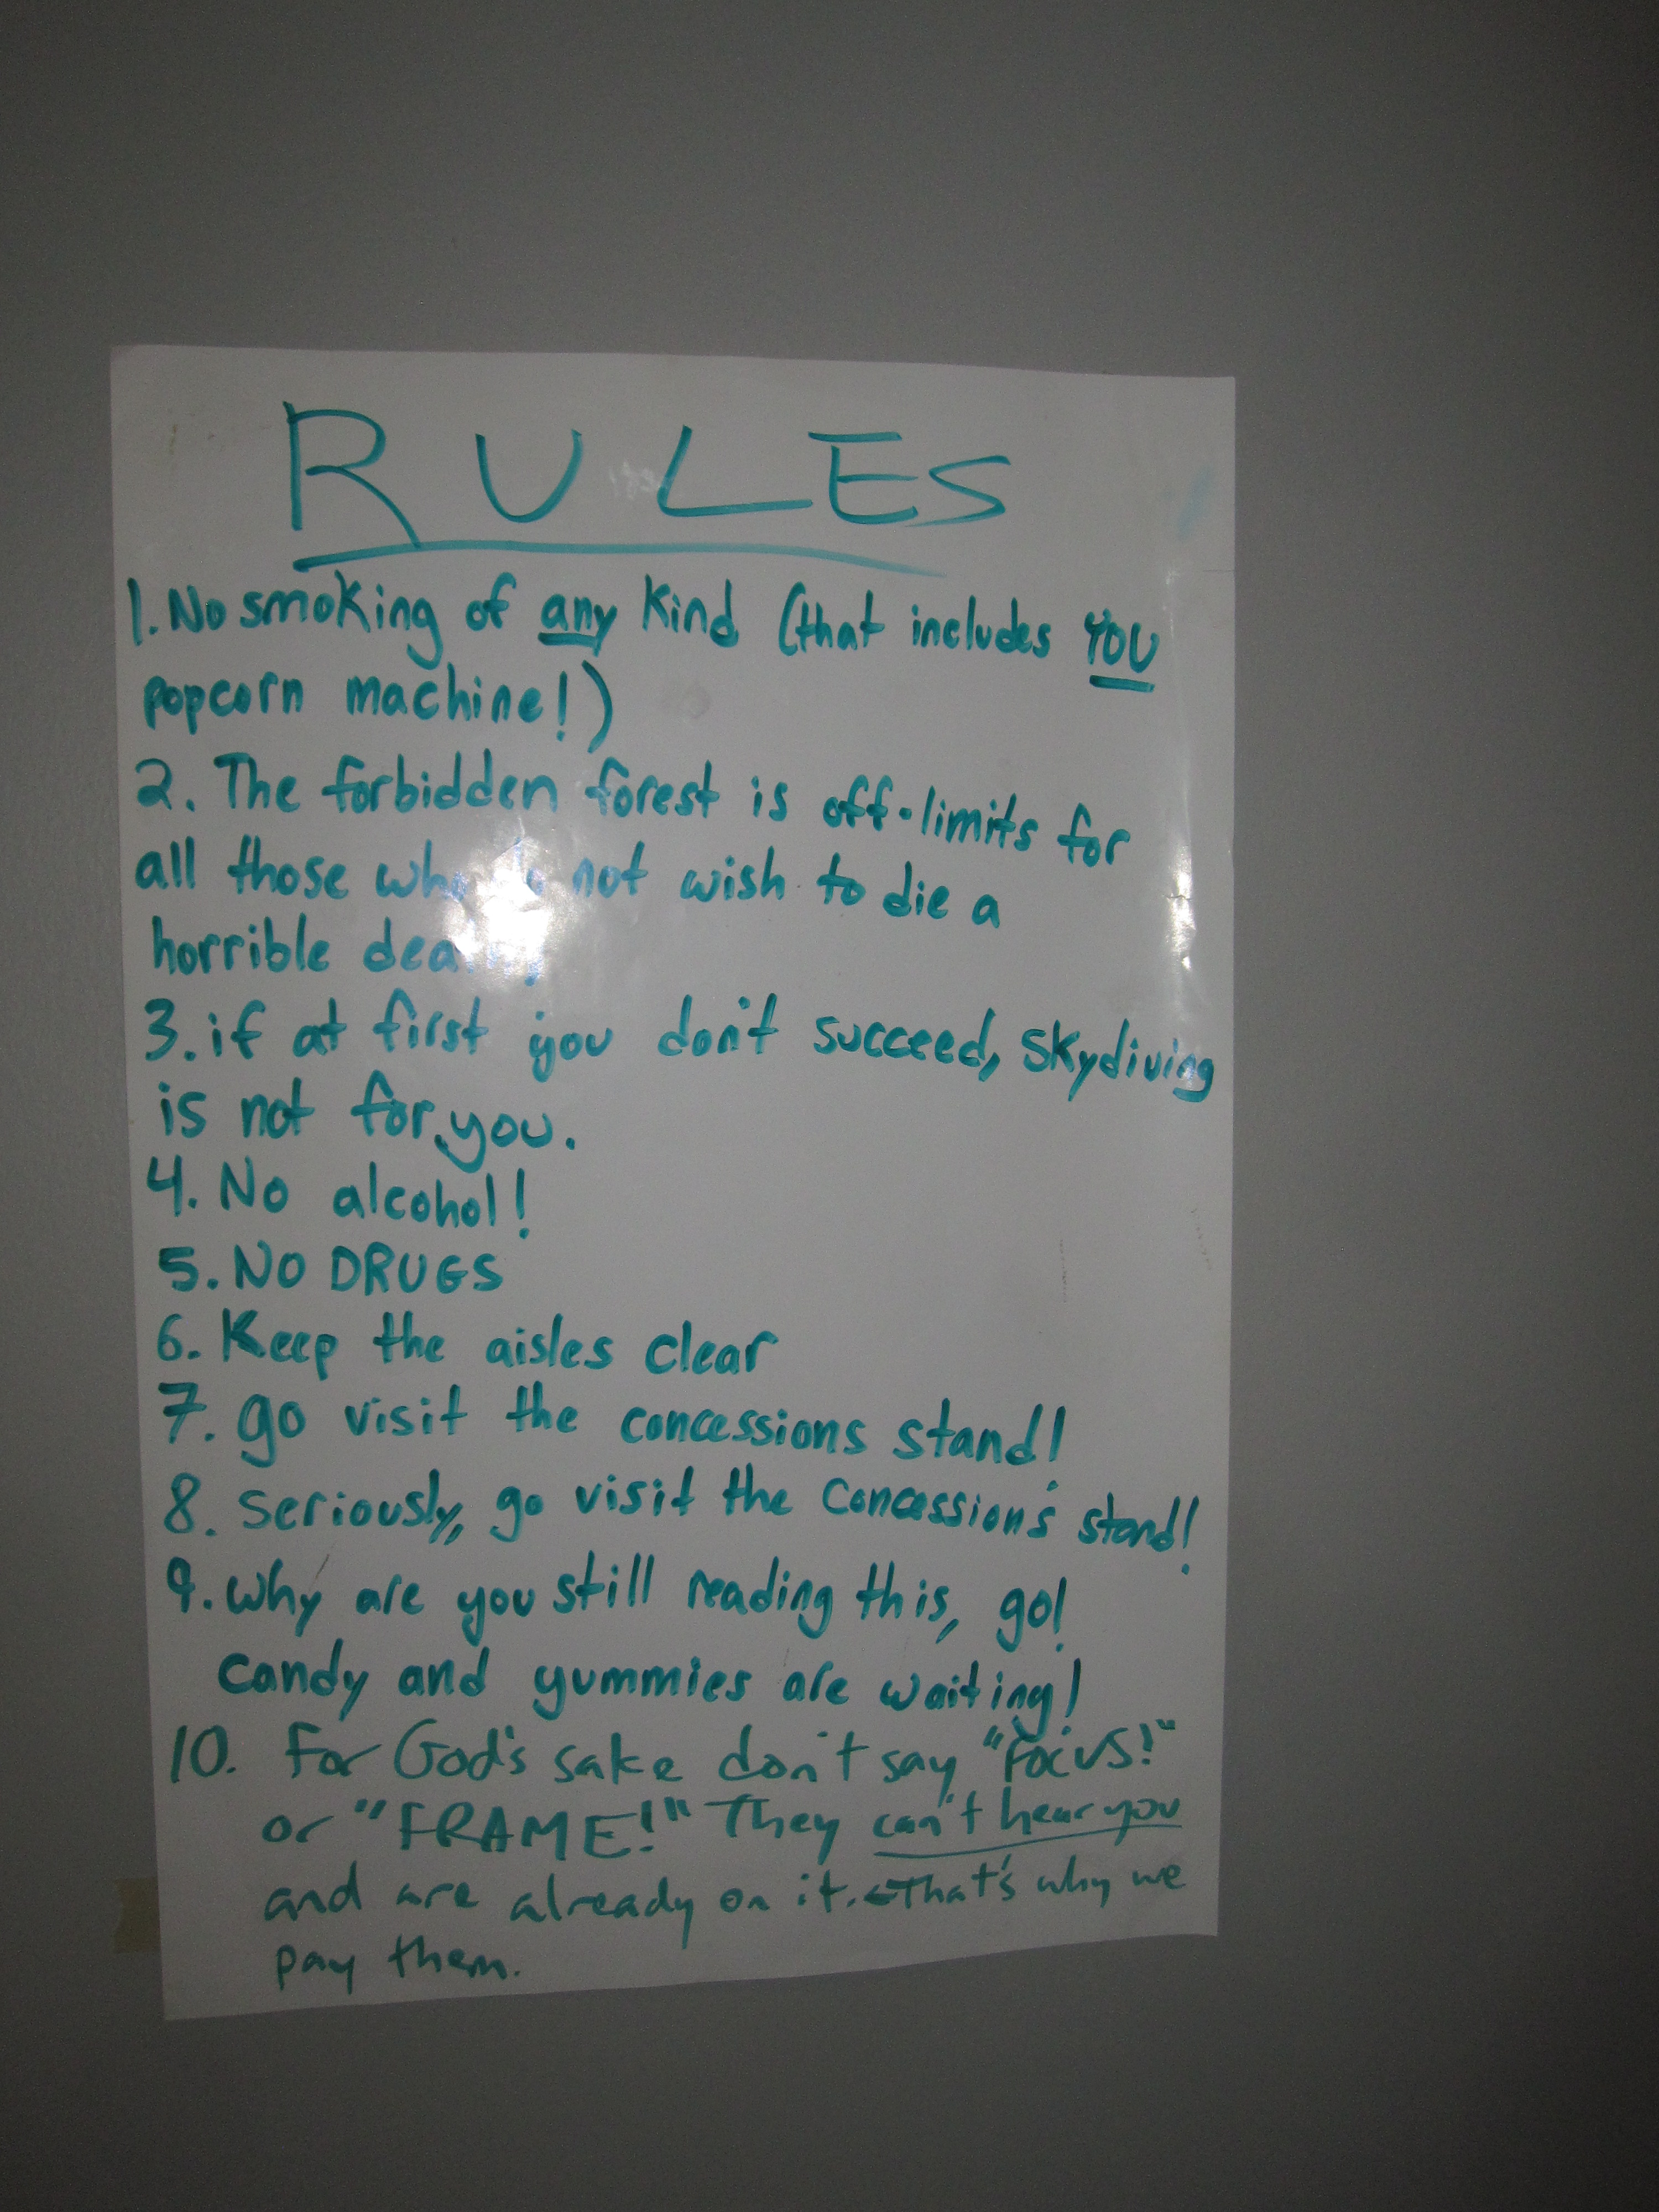 RULES
1. No smoking of any kind (that includes YOU
popcorn machine!)
2. The forbidden forest is off-limits for
all those who do not wish to die a
horrible death!
3. if at first you don't succeed, skydiving
is not for you.
4. No alcohol!
5. NO DRUGS
6. Keep the aisles clear
7. go visit the concessions stand!
8. seriously, go visit the concessions stand!
9. why are you still reading this, go!
candy and yummies are waiting!
10. For God's sake don't say "FOCUS!"
or "FRAME!" They can't hear you
and are already on it. ← That's why we
pay them.